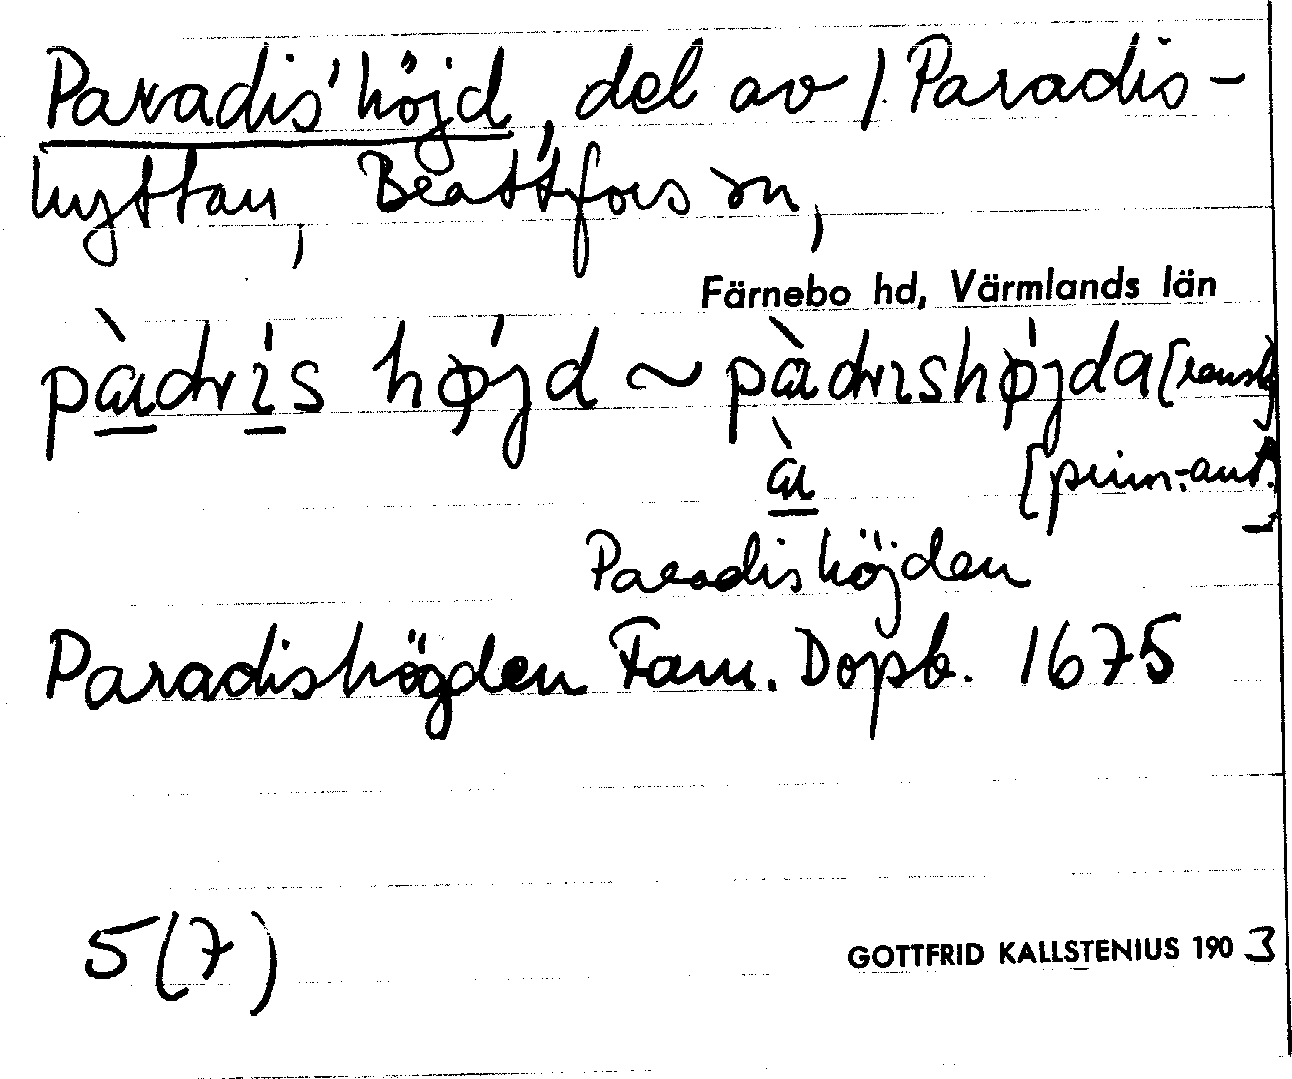 Paradis'höjd, del av 1. Paradis-
hyttan, Beattfors sn,
Färnebo hd, Värmlands län
pàdrís højd ~ pàdrishøjda [
[prim.-ant.]
Paradishöjden
Paradishögden Fam. Dopb. 1675
5(7)
GOTTFRID KALLSTENIUS 1903